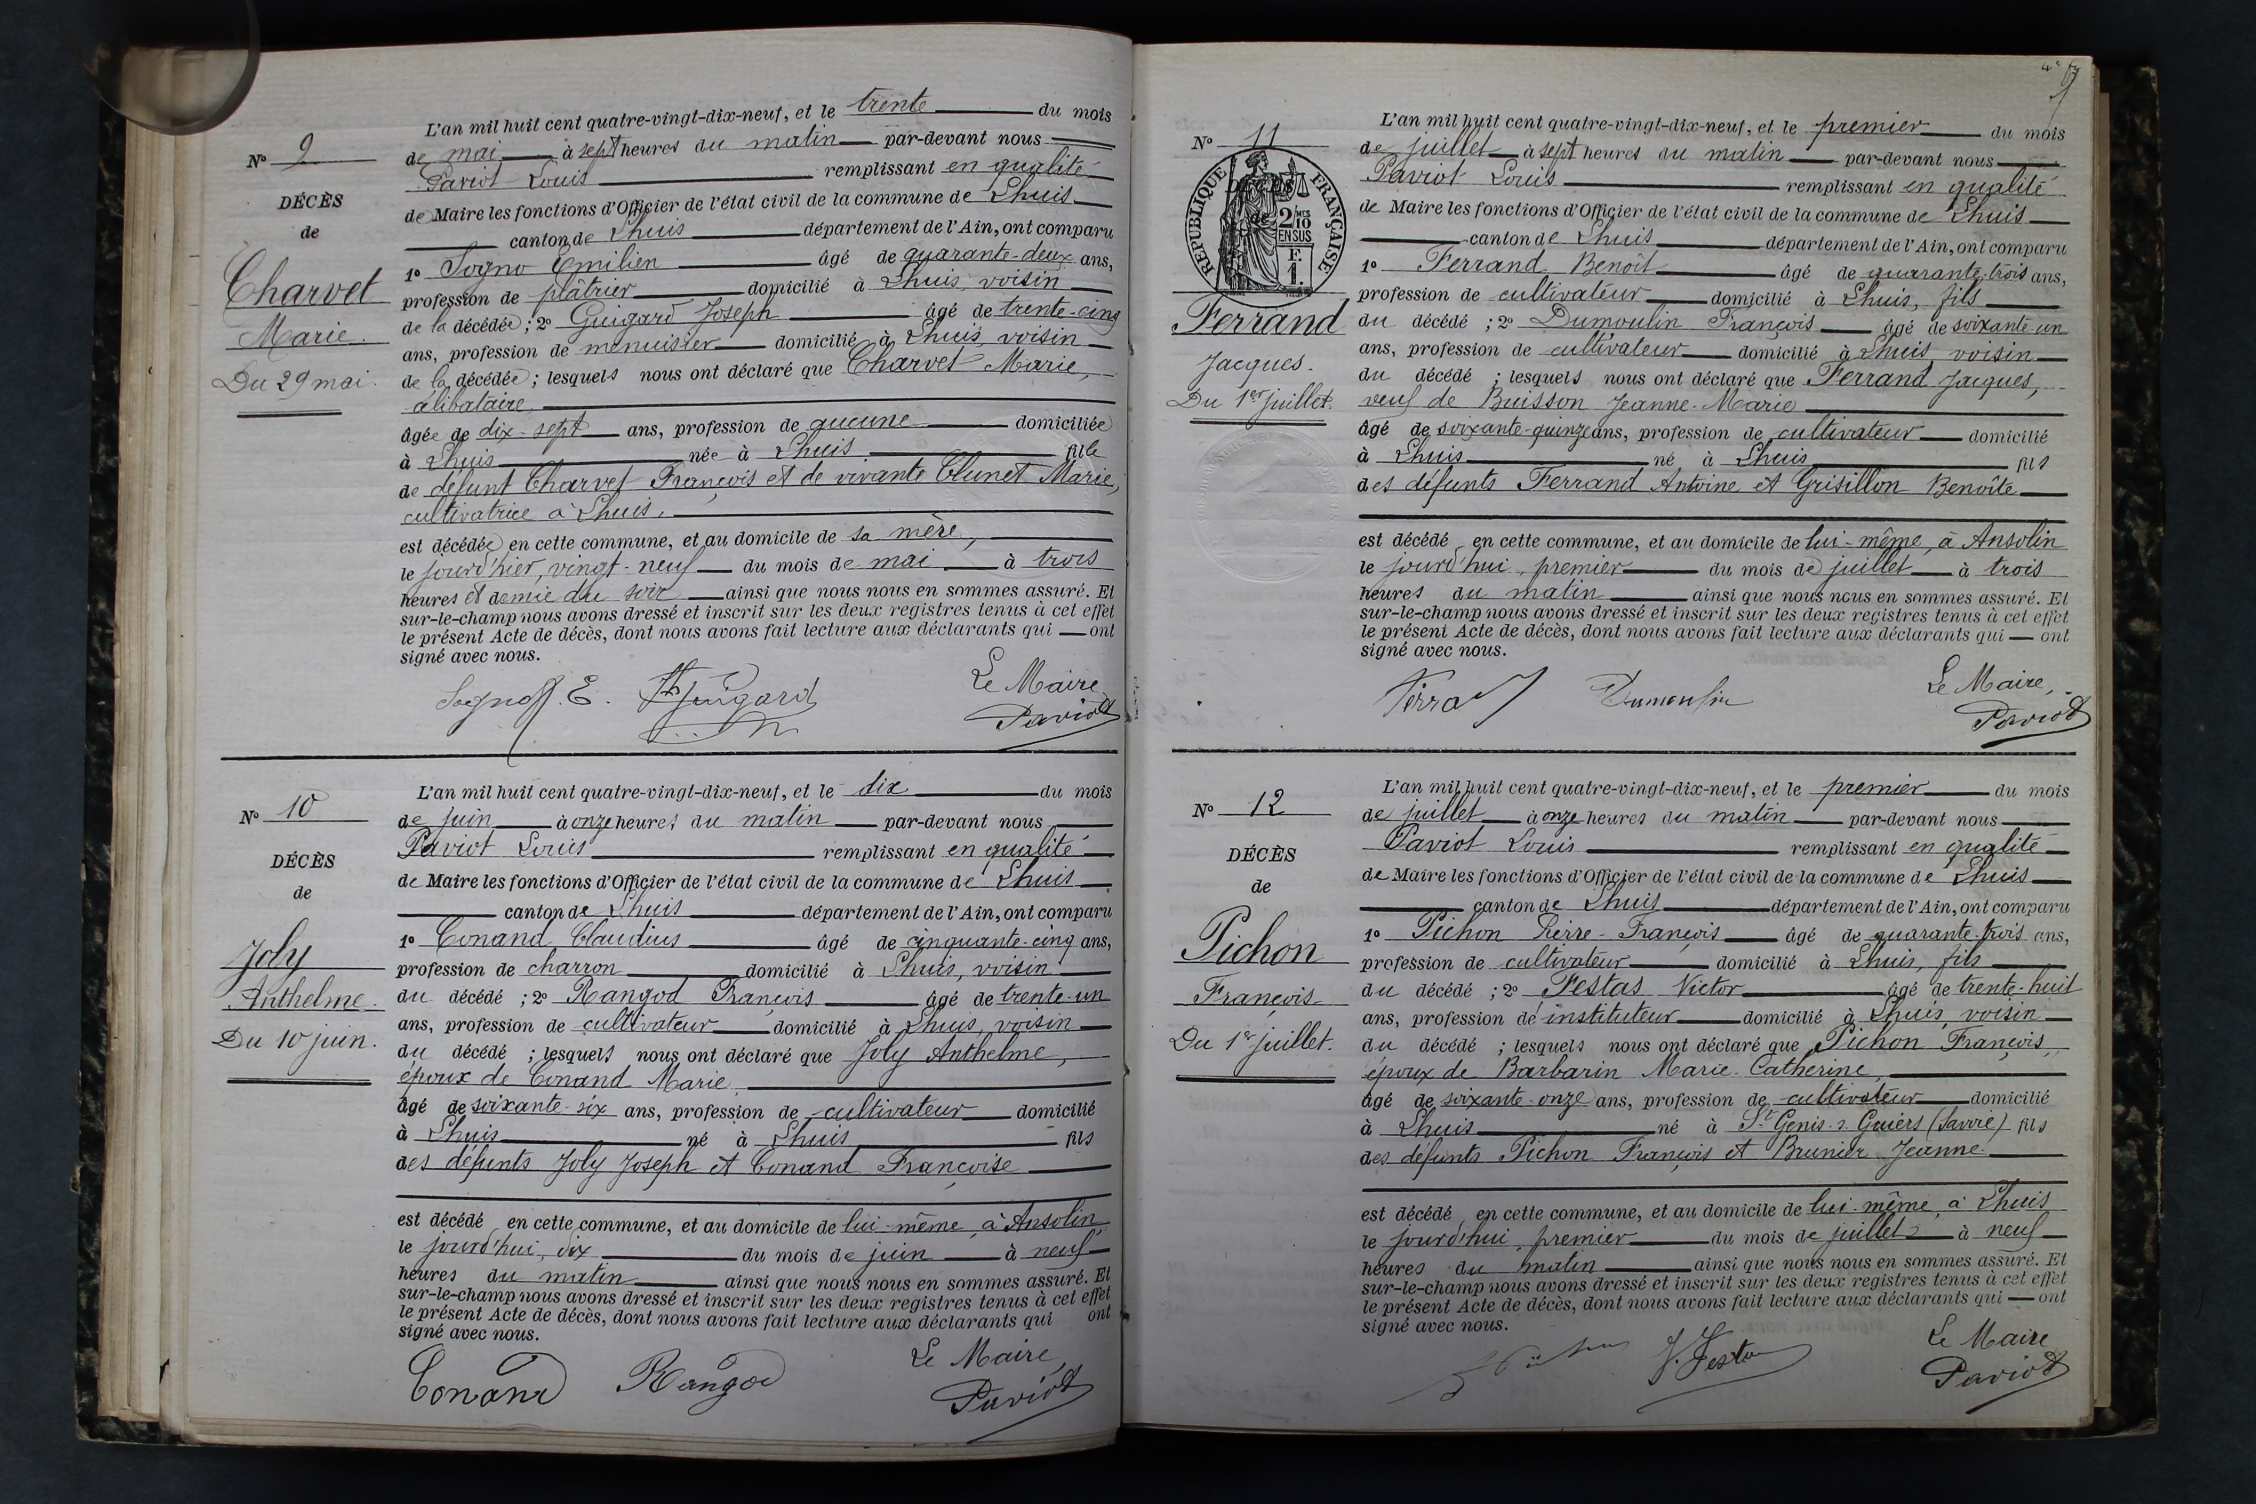 N° 9
DÉCÈS
de
Charvet
Marie.
Du 29 mai.
L'an mil huit cent quatre-vingt-dix-neuf, et le trente du mois
de mai à sept heures du matin par-devant nous
Paviot Louis remplissant en qualité
de Maire les fonctions d'Officier de l'état civil de la commune de Lhuis
canton de Lhuis département de l'Ain, ont comparu
1° Sogno Emilien âgé de quarante-deux ans,
profession de plâtrier domicilié à Lhuis, voisin
de la décédée ; 2° Guigard Joseph âgé de trente-cinq
ans, profession de menuisier domicilié à Lhuis, voisin
de la décédée ; lesquels nous ont déclaré que Charvet Marie,
célibataire
âgée de dix-sept ans, profession de aucune domiciliée
à Lhuis née à Lhuis fille
de défunt Charvet François et de vivante Clunet Marie,
cultivatrice à Lhuis,
est décédée en cette commune, et au domicile de sa mère,
le jourd'hier, vingt-neuf du mois de mai à trois
heures et demie du soir ainsi que nous nous en sommes assuré. Et
sur-le-champ nous avons dressé et inscrit sur les deux registres tenus à cet effet
le présent Acte de décès, dont nous avons fait lecture aux déclarants qui ont
signé avec nous.
Sogno E. Guigard Le Maire,
Paviot
N° 10
DÉCÈS
de
Joly
Anthelme.
Du 10 juin.
L'an mil huit cent quatre-vingt-dix-neuf, et le dix du mois
de juin à onze heures du matin par-devant nous
Paviot Louis remplissant en qualité
de Maire les fonctions d'Officier de l'état civil de la commune de Lhuis
canton de Lhuis département de l'Ain, ont comparu
1° Conand Claudius âgé de cinquante-cinq ans,
profession de charron domicilié à Lhuis, voisin
du décédé ; 2° Rangod François âgé de trente-un
ans, profession de cultivateur domicilié à Lhuis, voisin
du décédé ; lesquels nous ont déclaré que Joly Anthelme,
époux de Conand Marie
âgé de soixante-six ans, profession de cultivateur domicilié
à Lhuis né à Lhuis fils
des défunts Joly Joseph et Conand Françoise
est décédé en cette commune, et au domicile de lui-même, à Ansolin,
le jourd'hui, dix du mois de juin à neuf
heures du matin ainsi que nous nous en sommes assuré. Et
sur-le-champ nous avons dressé et inscrit sur les deux registres tenus à cet effet
le présent Acte de décès, dont nous avons fait lecture aux déclarants qui ont
signé avec nous.
Conand Rangod Le Maire,
Paviot
N° 11
RÉPUBLIQUE FRANÇAISE
2 10MES
EN SUS
F.
1.
Ferrand
Jacques.
Du 1er juillet.
L'an mil huit cent quatre-vingt-dix-neuf, et le premier du mois
de juillet à sept heures du matin par-devant nous
Paviot Louis remplissant en qualité
de Maire les fonctions d'Officier de l'état civil de la commune de Lhuis
canton de Lhuis département de l'Ain, ont comparu
1° Ferrand Benoît âgé de quarante-trois ans,
profession de cultivateur domicilié à Lhuis, fils
du décédé ; 2° Dumoulin François âgé de soixante-un
ans, profession de cultivateur domicilié à Lhuis, voisin
du décédé ; lesquels nous ont déclaré que Ferrand Jacques,
veuf de Buisson Jeanne-Marie
âgé de soixante-quinze ans, profession de cultivateur domicilié
à Lhuis né à Lhuis fils
des défunts Ferrand Antoine et Grisillon Benoîte
est décédé en cette commune, et au domicile de lui-même, à Ansolin
le jourd'hui, premier du mois de juillet à trois
heures du matin ainsi que nous nous en sommes assuré. Et
sur-le-champ nous avons dressé et inscrit sur les deux registres tenus à cet effet
le présent Acte de décès, dont nous avons fait lecture aux déclarants qui ont
signé avec nous.
Dumoulin Le Maire,
Paviot
N° 12
DÉCÈS
de
Pichon
François
Du 1er juillet.
L'an mil huit cent quatre-vingt-dix-neuf, et le premier du mois
de juillet à onze heures du matin par-devant nous
Paviot Louis remplissant en qualité
de Maire les fonctions d'Officier de l'état civil de la commune de Lhuis
canton de Lhuis département de l'Ain, ont comparu
1° Pichon Pierre-François âgé de quarante-trois ans,
profession de cultivateur domicilié à Lhuis, fils
du décédé ; 2° Festas Victor âgé de trente-huit
ans, profession de instituteur domicilié à Lhuis, voisin
du décédé ; lesquels nous ont déclaré que Pichon François,
époux de Barbarin Marie-Catherine,
âgé de soixante-onze ans, profession de cultivateur domicilié
à Lhuis né à St Genis-s-Guiers (Savoie) fils
des défunts Pichon François et Brunier Jeanne
est décédé en cette commune, et au domicile de lui-même, à Lhuis
le jourd'hui, premier du mois de juillet à neuf
heures du matin ainsi que nous nous en sommes assuré. Et
sur-le-champ nous avons dressé et inscrit sur les deux registres tenus à cet effet
le présent Acte de décès, dont nous avons fait lecture aux déclarants qui ont
signé avec nous.
V. Festas Le Maire
Paviot